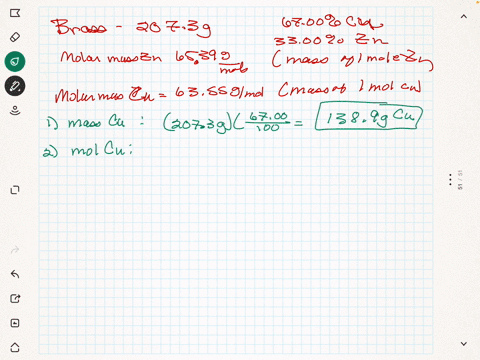 Brass - 207.3g 67.00% Cu
33.00% Zn
Molar mass Zn 65.39 g/mole (mass of 1 mole Zn)
Molar mass Cu = 63.55g/mol (mass of 1 mol Cu)
1) mass Cu : (207.3g)(67.00/100 = 138.9g Cu
2) mol Cu:
51 / 51